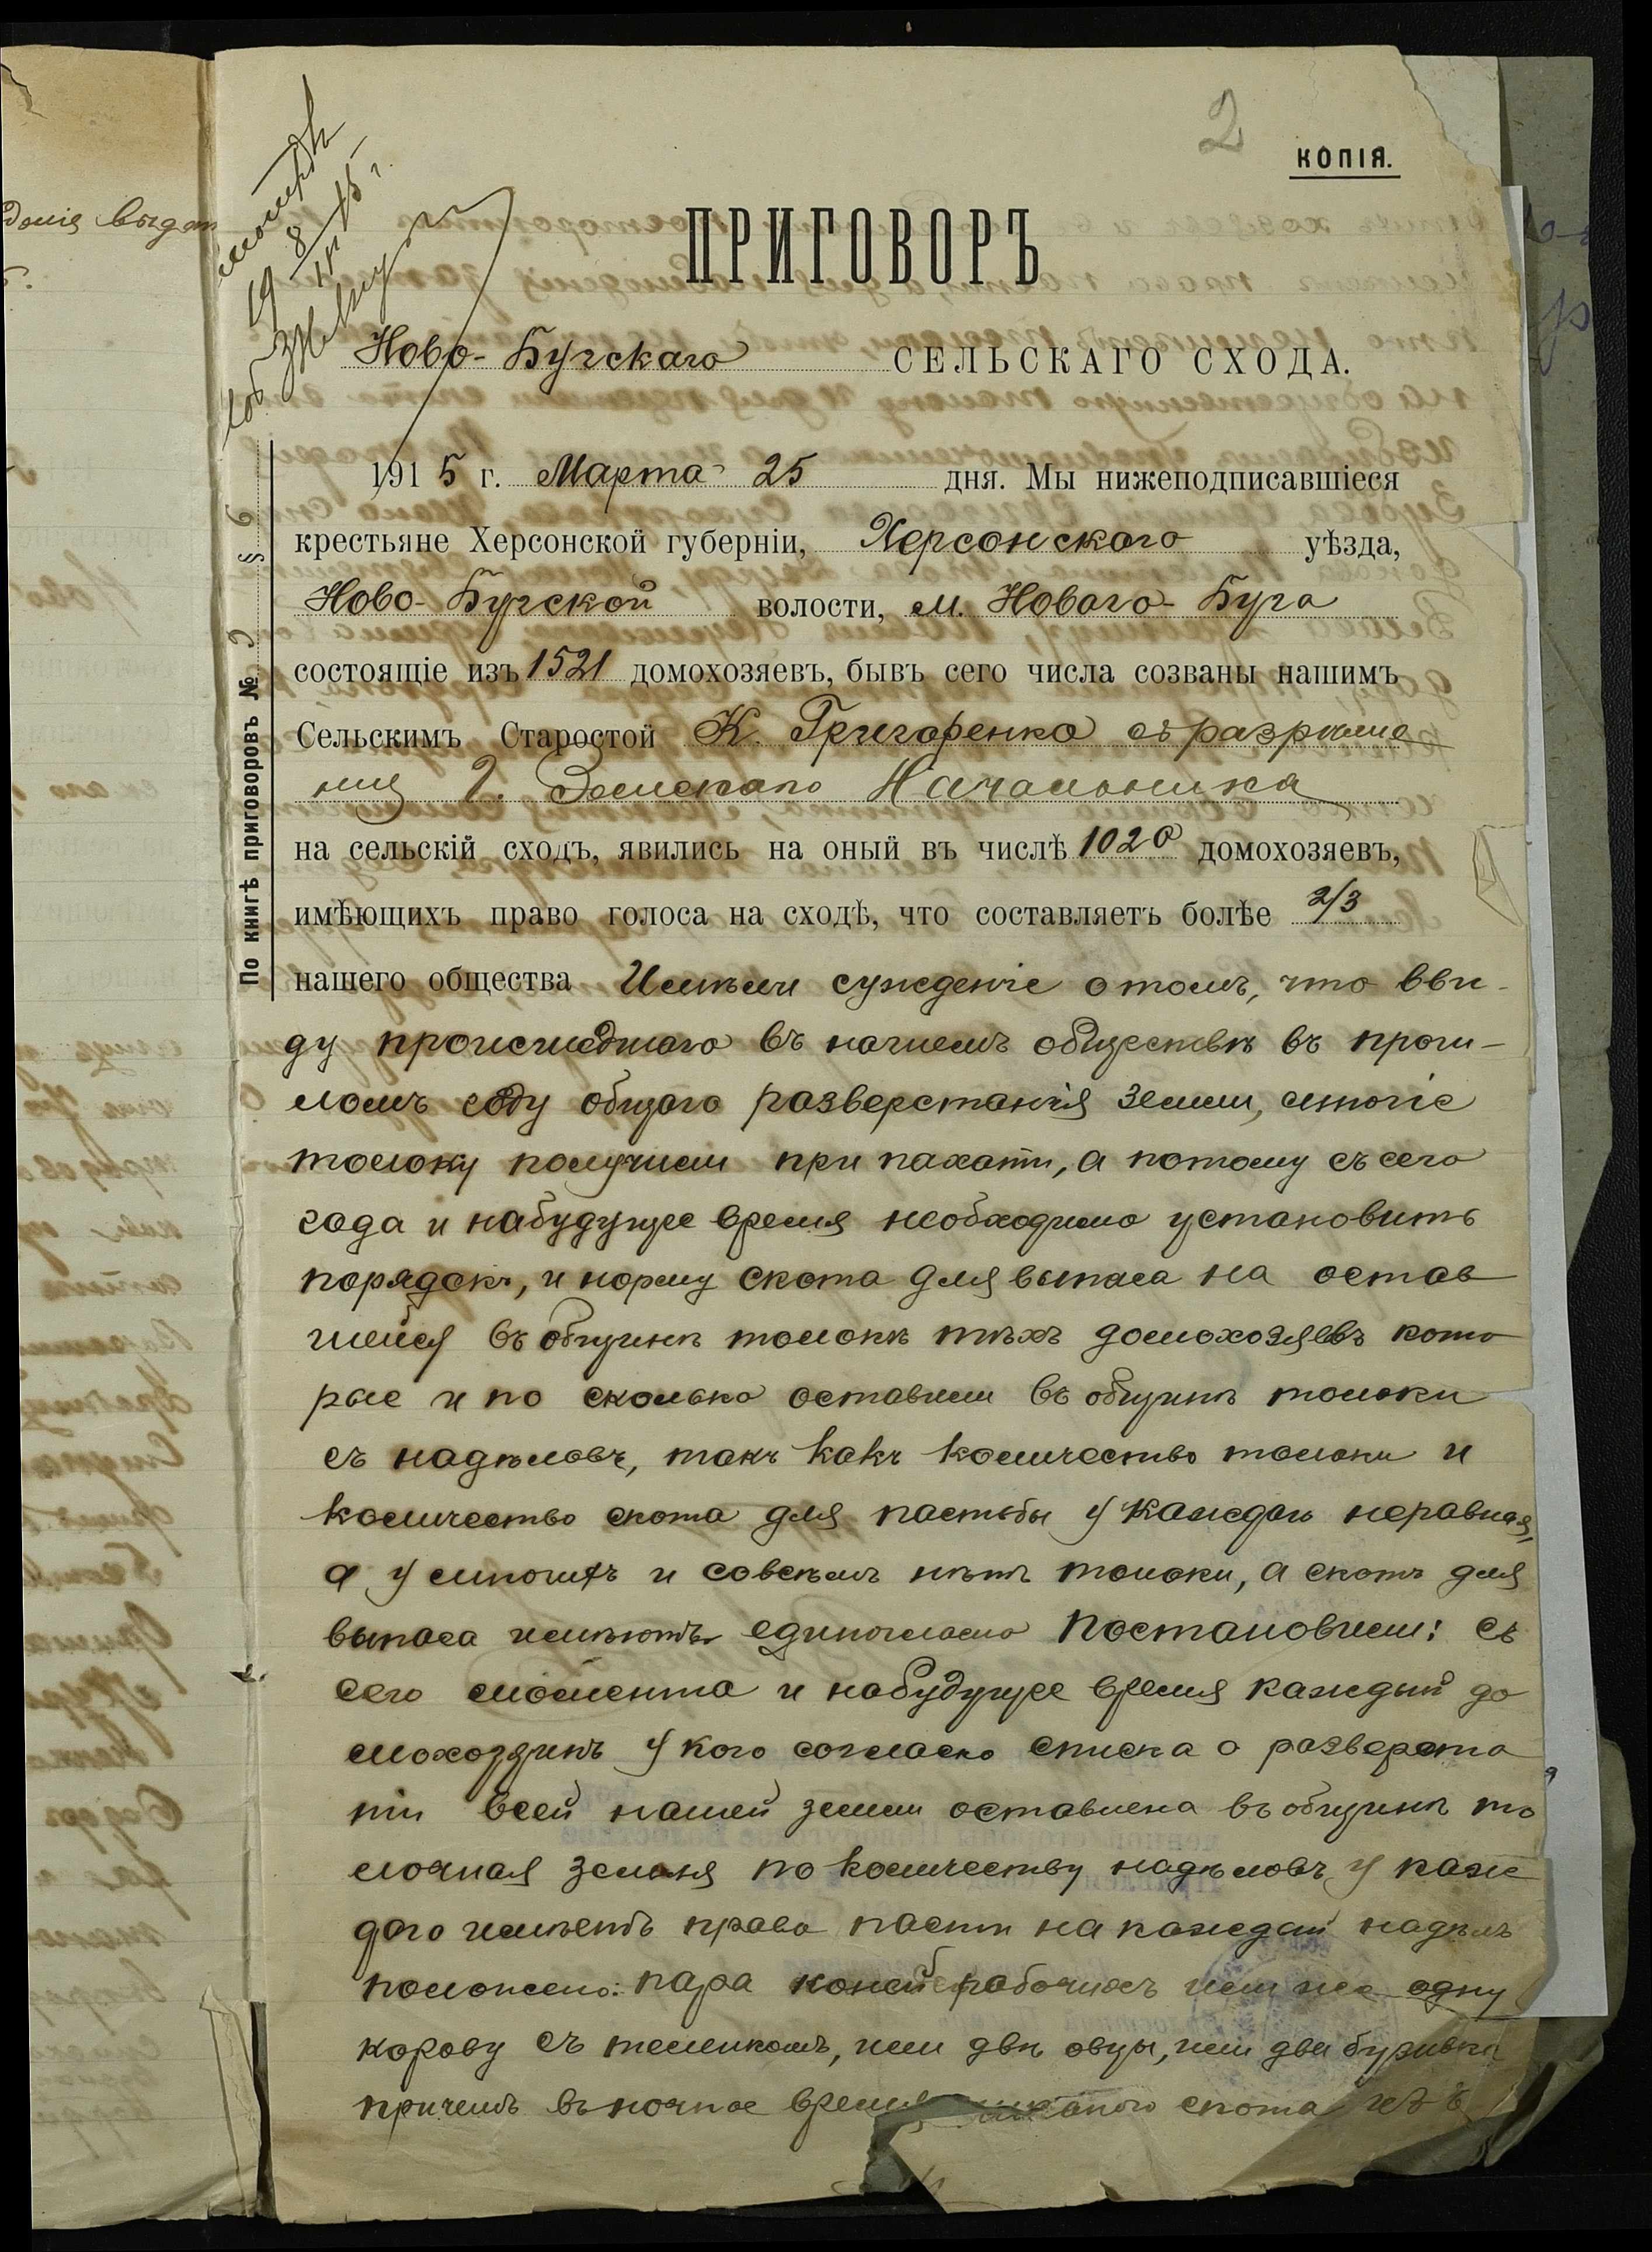 2
КОПІЯ.
ПРИГОВОРЪ
Ново-Бугскаго СЕЛЬСКАГО СХОДА.
1915 г. Марта 25 дня. Мы нижеподписавшіеся
крестьяне Херсонской губерніи, Херсонскаго уѣзда,
Ново-Бугской волости, м. Новаго-Буга
состоящіе изъ 1521 домохозяевъ, бывъ сего числа созваны нашимъ
Сельскимъ Старостой К. Григоренко съ разрѣше
нія Г. Земскаго Начальника
на сельскій сходъ, явились на оный въ числѣ 1020 домохозяевъ,
имѣющихъ право голоса на сходѣ, что составляетъ болѣе 2/3
нашего общества Имѣли сужденіе о томъ, что вви-
ду происшедшаго въ нашемъ обществѣ въ прош-
ломъ году общаго разверстанія земли, многіе
толоку получили при пахати, а потому съ сего
года и набудущее время необходимо установить
порядокъ, и норму скота для выпаса на остав
шейся въ общинѣ толокѣ тѣхъ домохозяевъ кото
рые и по сколько оставили въ общинѣ толоки
съ надѣловъ, такъ какъ количество толоки и
количество скота для пастьбы у каждаго неравная,
а у многихъ и совсѣмъ нѣтъ толоки, а скотъ для
выпаса имѣютъ единогласно постановили: съ
сего момента и набудущее время каждый до
мохозяинъ у кого согласно списка о разверста
ніи всей нашей земли оставлена въ общинѣ то
лочная земля по количеству надѣловъ у каж
даго имѣетъ право пасти на каждый надѣлъ
положено: пара коней рабочихъ или же одну
корову съ теленкомъ, или двѣ овцы, или два бузивка
причемъ въ ночное время скота
По книгѣ приговоровъ № 9 § 6